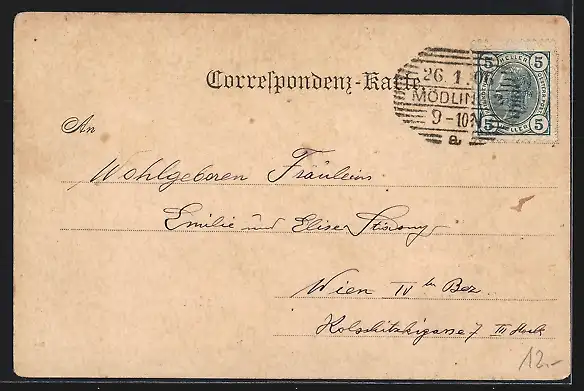 Correspondenz-Karte
26. 1. 
MÖDLIN
9-10
a
5 HELLER 5
5 HELLER 5
An
Wohlgeboren Fräuleins
Emilie und Elise
Wien IV ten Bez.
Kolschitzkigasse 7 III Stock
12.-